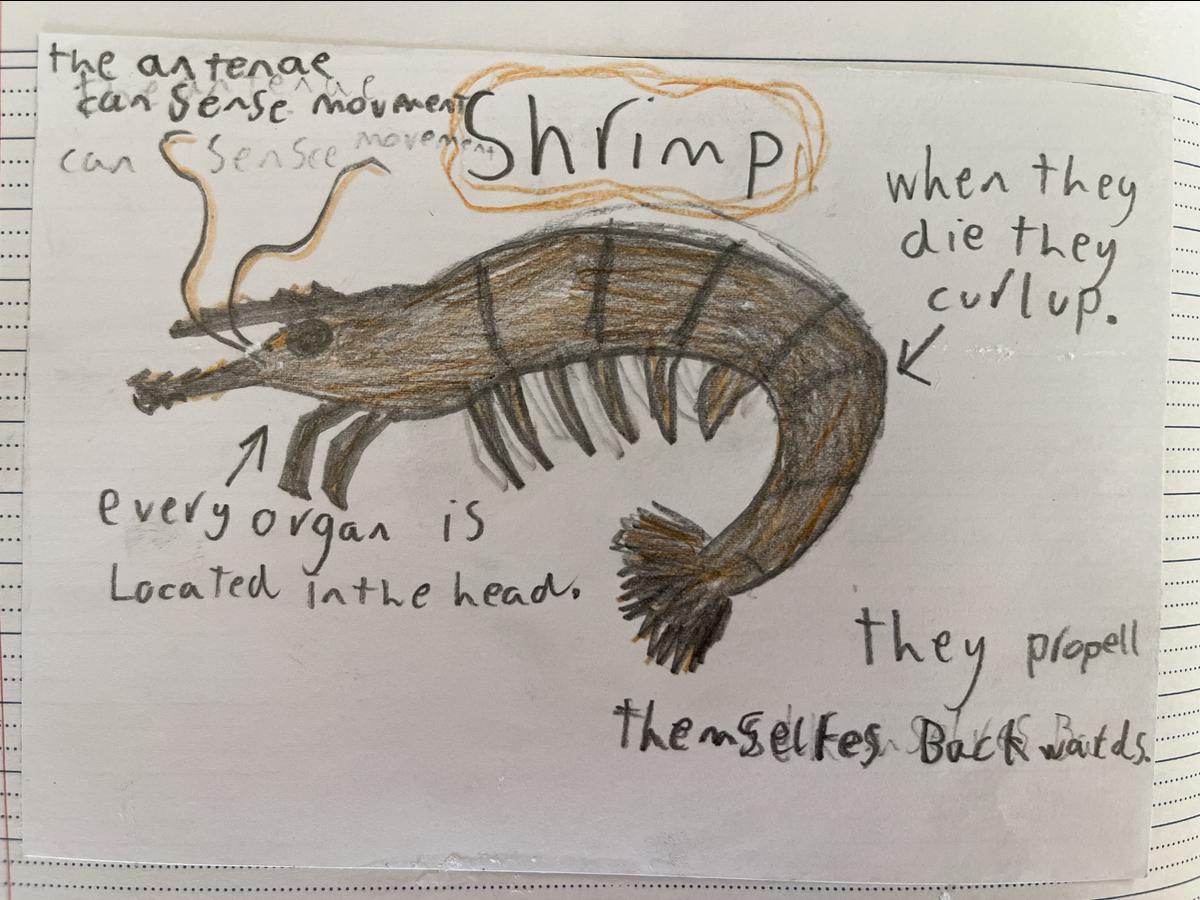 the antenae
can sense movement
can sensce movement
Shrimp
when they
die they
curl up.
every organ is
Located in the head.
they propell
themselfes Backwards.